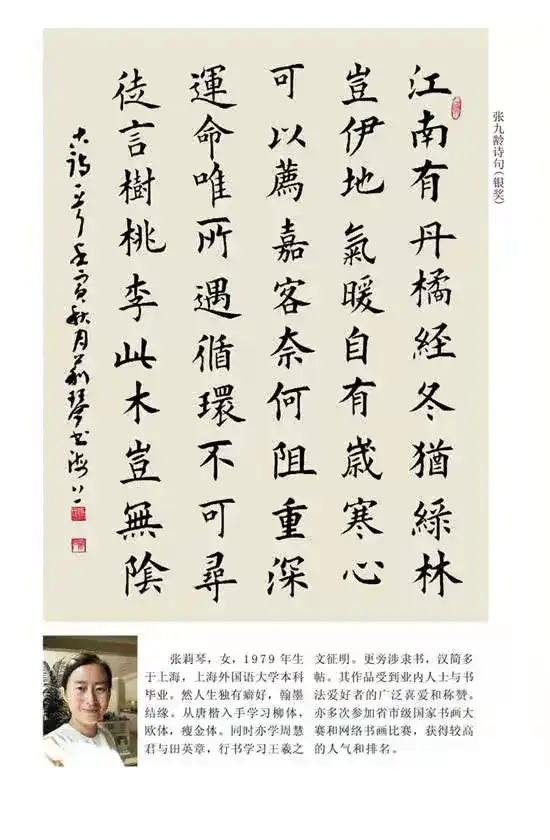 江南有丹橘経冬猶綠林
豈伊地氣暖自有歲寒心
可以薦嘉客奈何阻重深
運命唯所遇循環不可尋
徒言樹桃李此木豈無陰
古詩一首壬寅秋月莉琴书海上
张九龄诗句（银奖）
张莉琴，女，1979 年生
于上海，上海外国语大学本科
毕业。然人生独有癖好，翰墨
结缘。从唐楷入手学习柳体，
欧体，瘦金体。同时亦学周慧
君与田英章，行书学习王羲之
文征明。更旁涉隶书，汉简多
帖。其作品受到业内人士与书
法爱好者的广泛喜爱和称赞。
亦多次参加省市级国家书画大
赛和网络书画比赛，获得较高
的人气和排名。